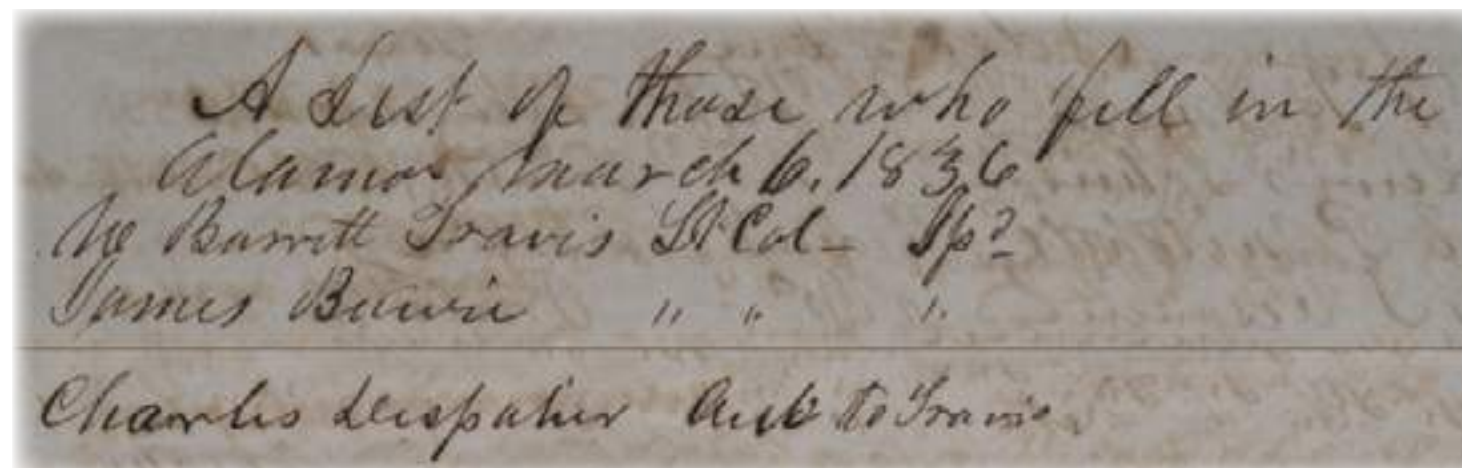 A List of those who fell in the
Alamo March 6, 1836
W Barrett Travis Lt Col -
James Bowie " " "
Charles Despalier Aid to Travis